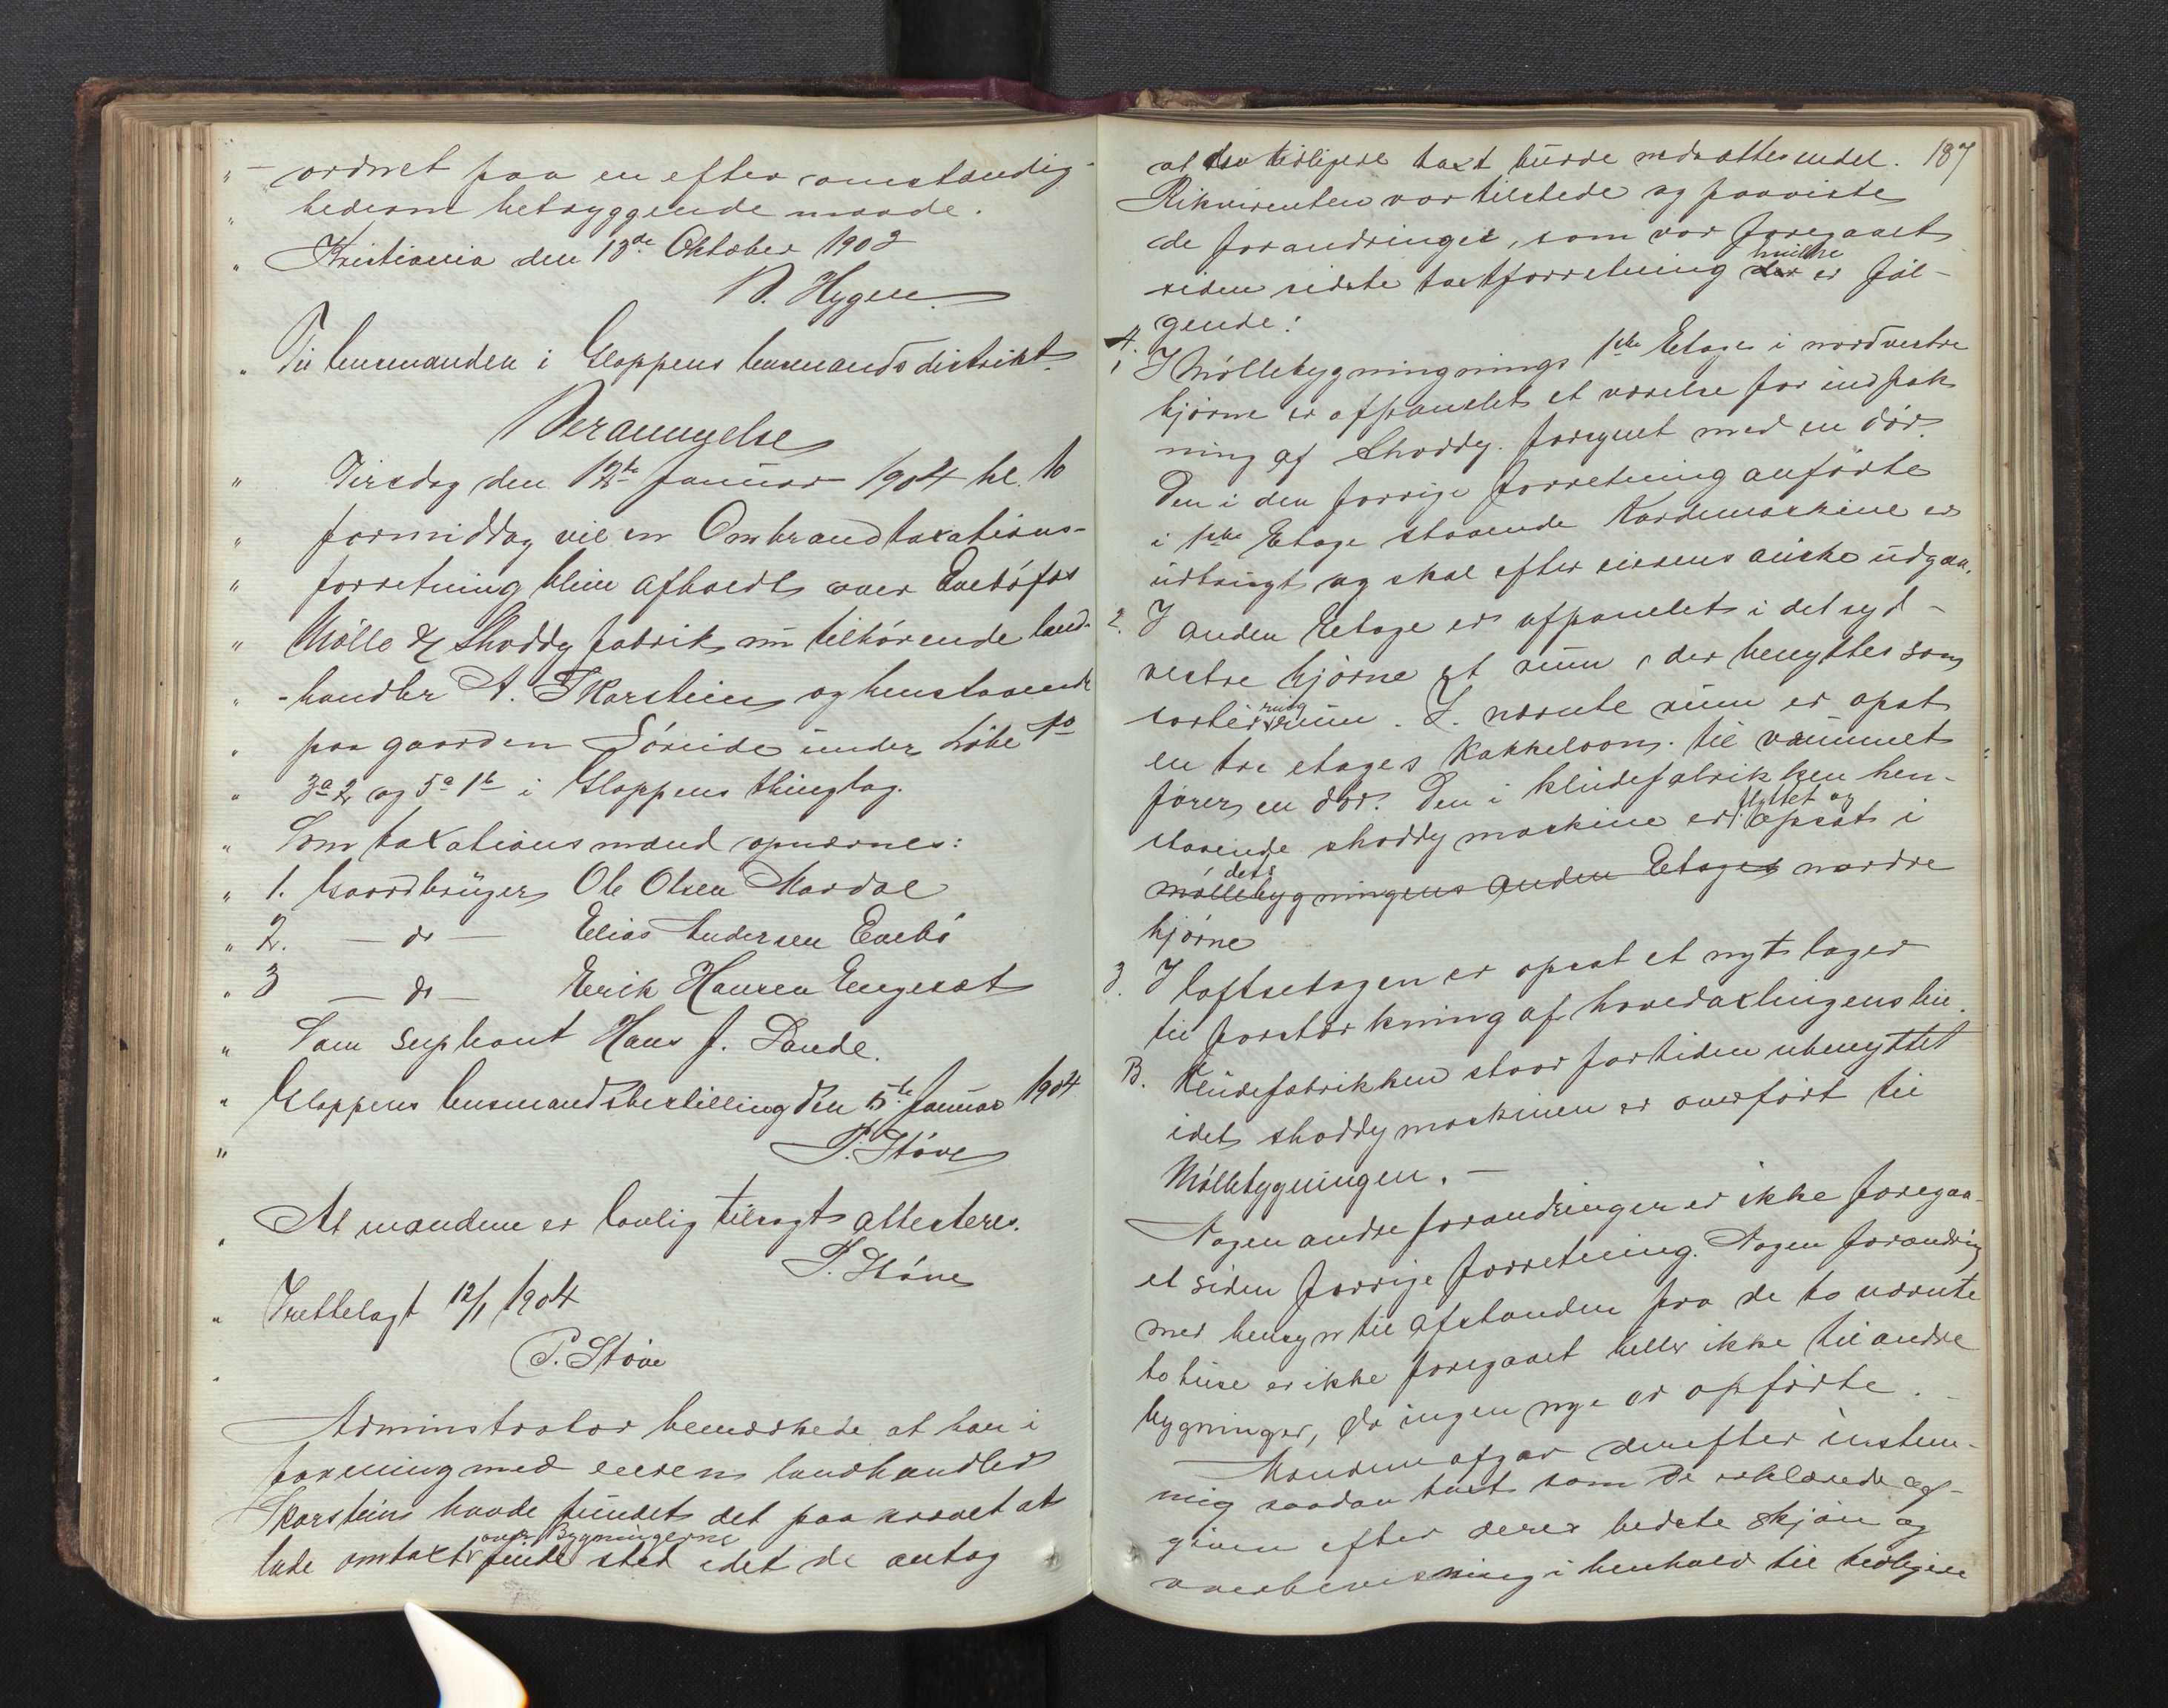 " – ordnet paa en efter omstændig-
" hederne betryggende maade.
" Kristiania den 13de Oktober 1902
N. Hygen.
" Til lensmanden i Gloppens lensmandsdistrikt.
Berammelse
" Tirsdag den 12te Januar 1904 kl. 10
" formiddag vil en Ombrandtaxations-
" forretning blive afholdt over Evebøfos
" Mølle & Shoddy fabrik nu tilhørende land-
" -handler A. Skarstein og henstaaende
" paa gaarden Søreide under Løbe No
" 3a 2 og 5a 1b i Gloppens thinglag.
" Som taxationsmænd opnævnes:
" 1. Gaardbruger Ole Olsen Mardal
" 2. – do – Elias Andersen Evebø
" 3 – do – Erik Hansen Engeset
" Som supleant Hans J. Sande.
" Gloppens lensmandsbestilling den 5te Januar 1904
" P. Støve
" At mændene er lovlig tilsagt attesteres.
P. Støve
" Irettelagt 12/1 1904
P. Støve
"
Adminstrator bemærkede at han i
forening med eieren landhandler
Skarstein havde fundet det paakrævet at
over Bygningerne
lade omtaxt finde sted idet de antog
at den tidligere taxt burde nedsættes endel. 187
Rikvirenten var tilstede og paaviste
de forandringer, som var foregaaet
hvilke
siden sidste taxtforretning der er føl-
gende:
A.
1 I Møllebygningnings 1ste Etage i nordvestre
hjørne er afpanelet et værelse for indpak
ning af Shoddy. forsynet med en dør.
Den i den forrige forretning anførte
i 1ste Etage staaende Kardemaskine er
udtrugt og skal efter eierens ønske udgaa.
2. I anden Etage er afpanelet i det syd-
vestre hjørne et rum, der benyttes som
ring
sorterrum. I nævnte rum er opsat
en tre etages Kakkelovn. til rummet
fører en dør. Den i kludefabrikken hen-
flyttet og
staaende shoddy maskine er opsat i
dets
møllebygningens anden Etages nordre
hjørne
3. I loftsetagen er opsat et nyt lager
til forstærkning af hovedaxlingens
B. Kludefabrikken staar for tiden ubenyttet
idet shoddymaskinen er overført til
Møllebygningen. –
Nogen andre forandringer er ikke foregaa-
et siden forrige forretning. Nogen forandring
med hensyn til afstanden fra de to nævnte
to huse er ikke foregaaet heller ikke til andre
bygninger, da ingen nye er opførte. –
Mændene afgav derefter enstem-
mig saadan taxt som de erklærede af-
given efter deres bedste skjøn og
overbevisning i henhold til tidligere